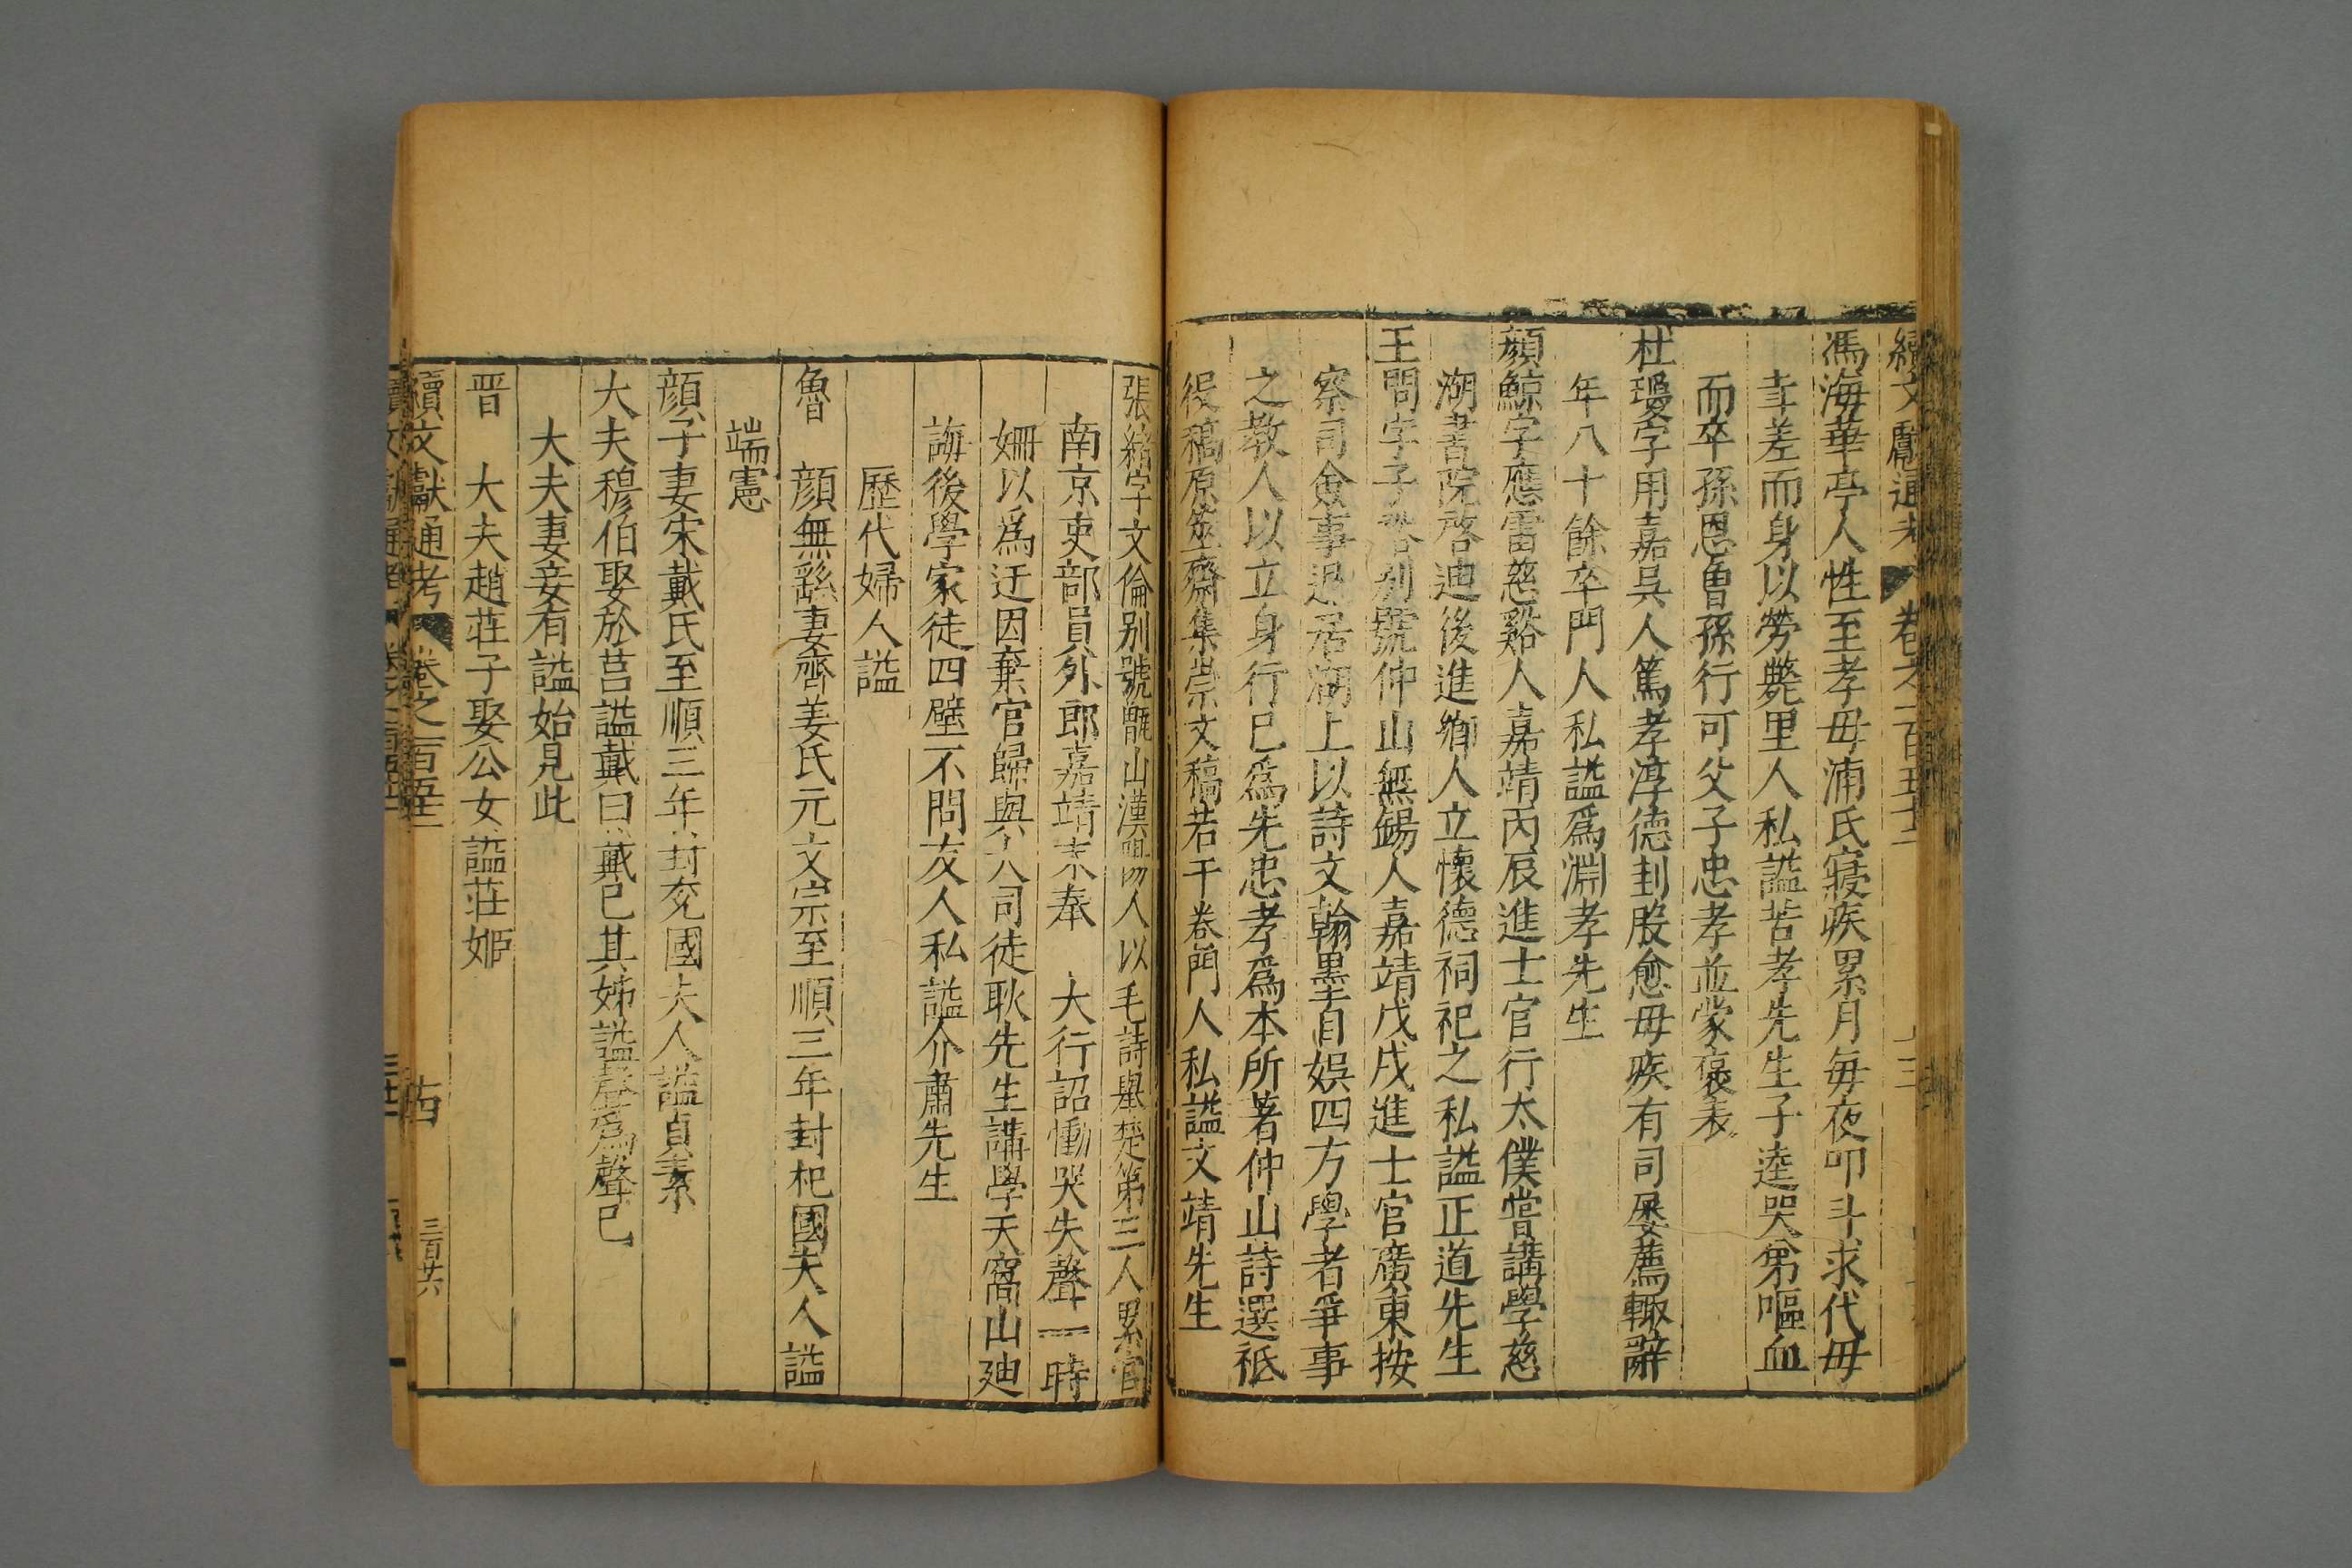 續文獻通考 卷之一百五十二
馮海華亭人性至孝毋浦氏寢疾累月每夜叩斗求代毋
幸差而身以勞斃里人私諡苦孝先生子逵哭弟嘔血
而卒孫恩曾孫行可父子忠孝並蒙褒表
杜瓊字用嘉吳人篤孝淳德刲股愈毋疾有司屡薦輙辭
年八十餘卒門人私諡爲淵孝先生
顔鯨字應雷慈谿人嘉靖丙辰進士官行太僕嘗講學慈
湖書院啓迪後進鄉人立懷德祠祀之私諡正道先生
王問字子裕别號仲山無錫人嘉靖戊戌進士官廣東按
察司僉事退居湖上以詩文翰墨自娱四方學者爭事
之教人以立身行巳爲先忠孝爲本所著仲山詩選祗
役稿原筮齋集崇文稿若干卷門人私諡文靖先生
張緒字文倫别號甑山漢陽人以毛詩舉楚第三人累官
南京吏部員外郎嘉靖末奉 大行詔慟哭失聲一時
姍以爲迂因棄官歸與大司徒耿先生講學天窩山廸
誨後學家徒四壁不問友人私諡介肅先生
歷代婦人諡
魯 顔無繇妻齊姜氏元文宗至順三年封杞國夫人諡
端憲
顔子妻宋戴氏至順三年封兖國夫人諡貞素
大夫穆伯娶於莒諡戴曰戴巳其姊諡聲爲聲巳
大夫妻妾有諡始見此
晋 大夫趙莊子娶公女諡莊姬
續文獻通考 卷之一百五十二 十四 三百廿六